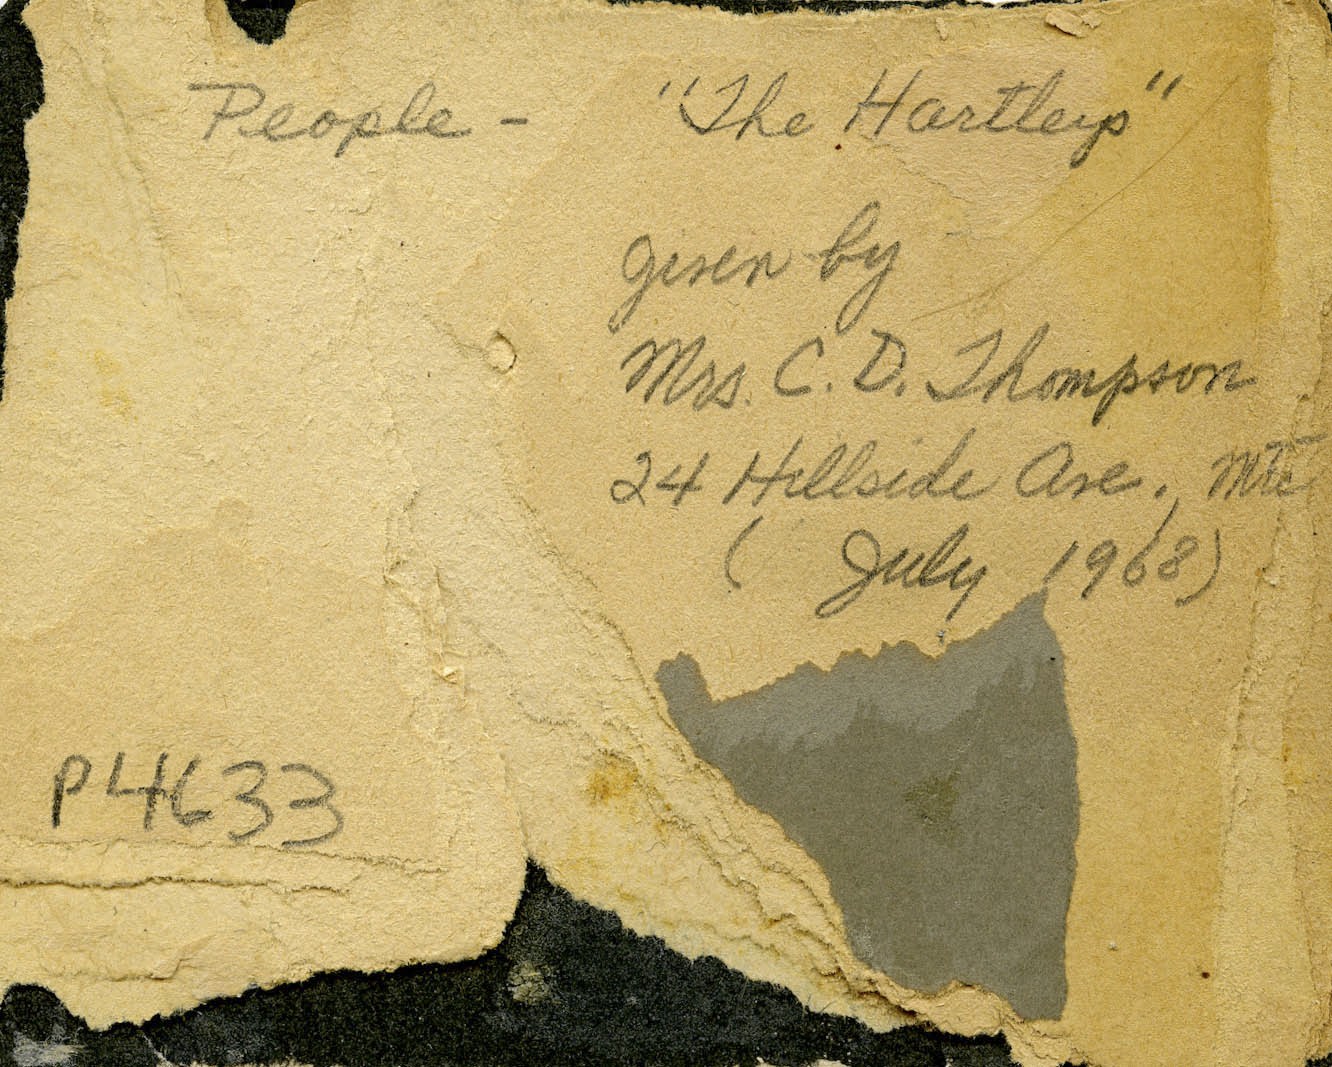 People - "The Hartleys"
given by
Mrs. C. D. Thompson
24 Hillside Ave., Mtc
( July 1968)
P4633